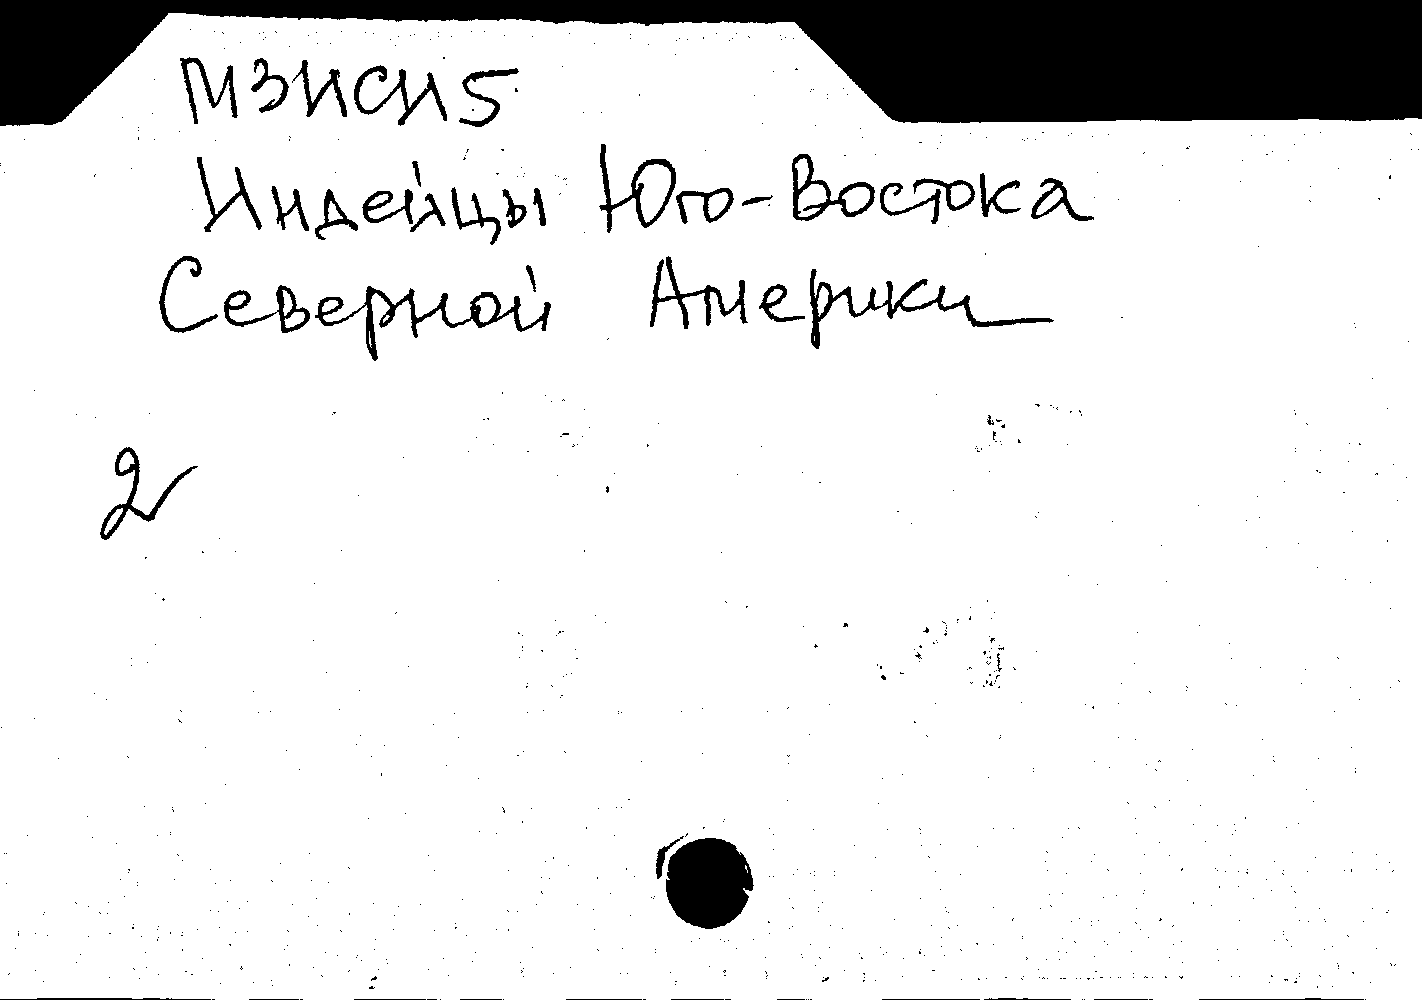 МЗИСИ5
Индейцы Юго-Востока
Северной Америки
2